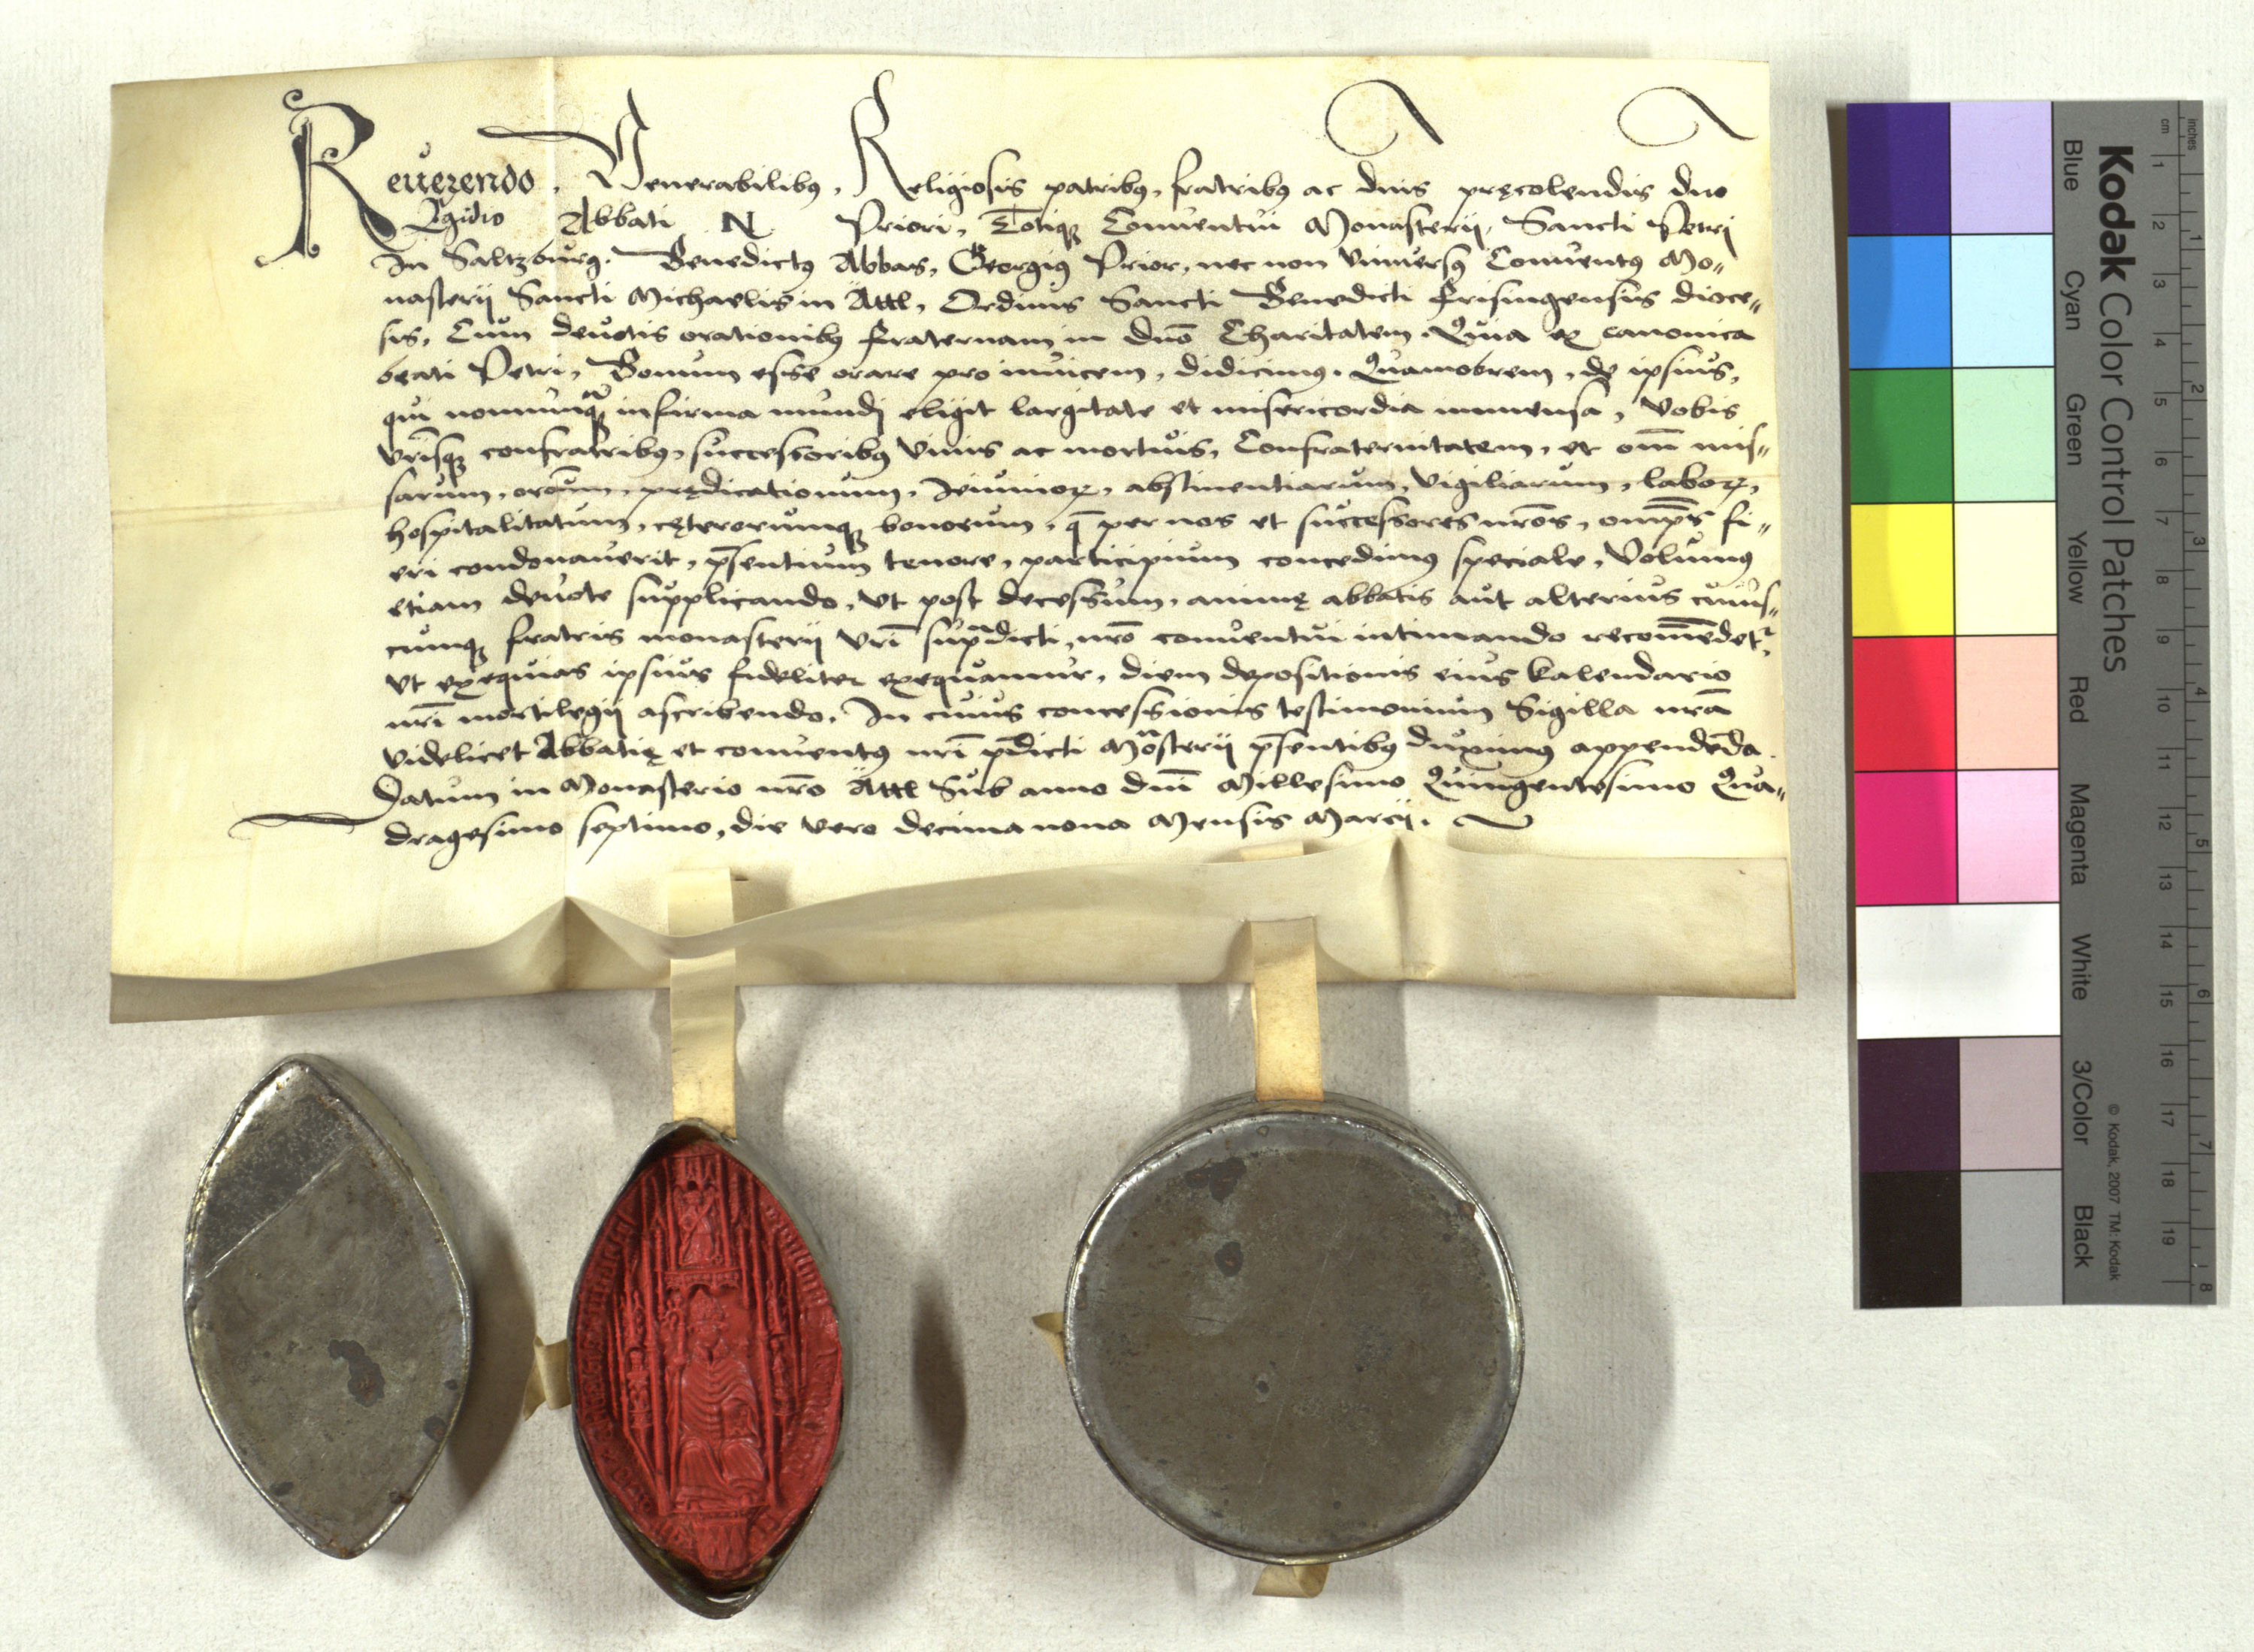 Reuerendo, Venerabilibꝰ, Religiosis patribꝫ, fratribꝫ ac dnis pręcolendis dno
Egidio Abbati N Priori, Totiqꝫ Conuentui Monasterij, Sancti Petri
In Saltzburg. Benedictꝰ Abbas, Georgiꝰ Prior, nec non vniuersꝰ Conuentꝰ Mo„
nasterij Sancti Michaelis in Ättl, Ordinis Sancti Benedicti Frisingensis dioce„
sis, Cum deuotis orationibꝫ fraternam in dno̅ Charitatem. Quia ex canonica
beati Petri, Bonum esse orare pro inuicem, didicimꝰ. Quamobrem, de ipsius,
qui nonnunqᵃꝫ infirma mundj eligit largitate et misericordia immensa, vobis
vr̅isqꝫ confratribꝫ, successoribꝫ viuis ac mortuis, Confraternitatem, et om̅ mis„
sarum, oro̅num, prędicationum, Ieiunioꝝ, abstinentiarum, vigiliarum, laboꝝ,
hospitalitatum, cęterorumqꝫ bonorum, q̅ per nos et successores nr̅os, omp̅s fi„
eri condonauerit, p̅sentium tenore, participium concedimꝰ speciale, Volumꝰ
etiam deuote supplicando, vt post decessum, animę abbatis aut alterius cuius„
cumqꝫ fratris monasterij vr̅i supᵃdicti, nr̅o conuentui intimando recom̅e̅detᷣ,
vt exequias ipsius fideliter exequamur, diem depositionis eius kalendario
nr̅i mortilegij ascribendo. In cuius concessionis testimonium Sigilla nr̅a
videlicet Abbatię et conuentꝰ nr̅i p̅dicti Mo̅asterij p̅sentibꝫ duximꝰ appende̅da.
Datum in Monasterio nr̅o Ättl Sub anno dni̅ Millesimo Quingentesimo Qua„
dragesimo septimo, die vero decima nona Mensis Marcij.
Kodak Color Control Patches
Blue Cyan Green Yellow Red Magenta White 3/Color Black
© Kodak, 2007 TM: Kodak
cm 1 2 3 4 5 6 7 8 9 10 11 12 13 14 15 16 17 18 19
inches 1 2 3 4 5 6 7 8